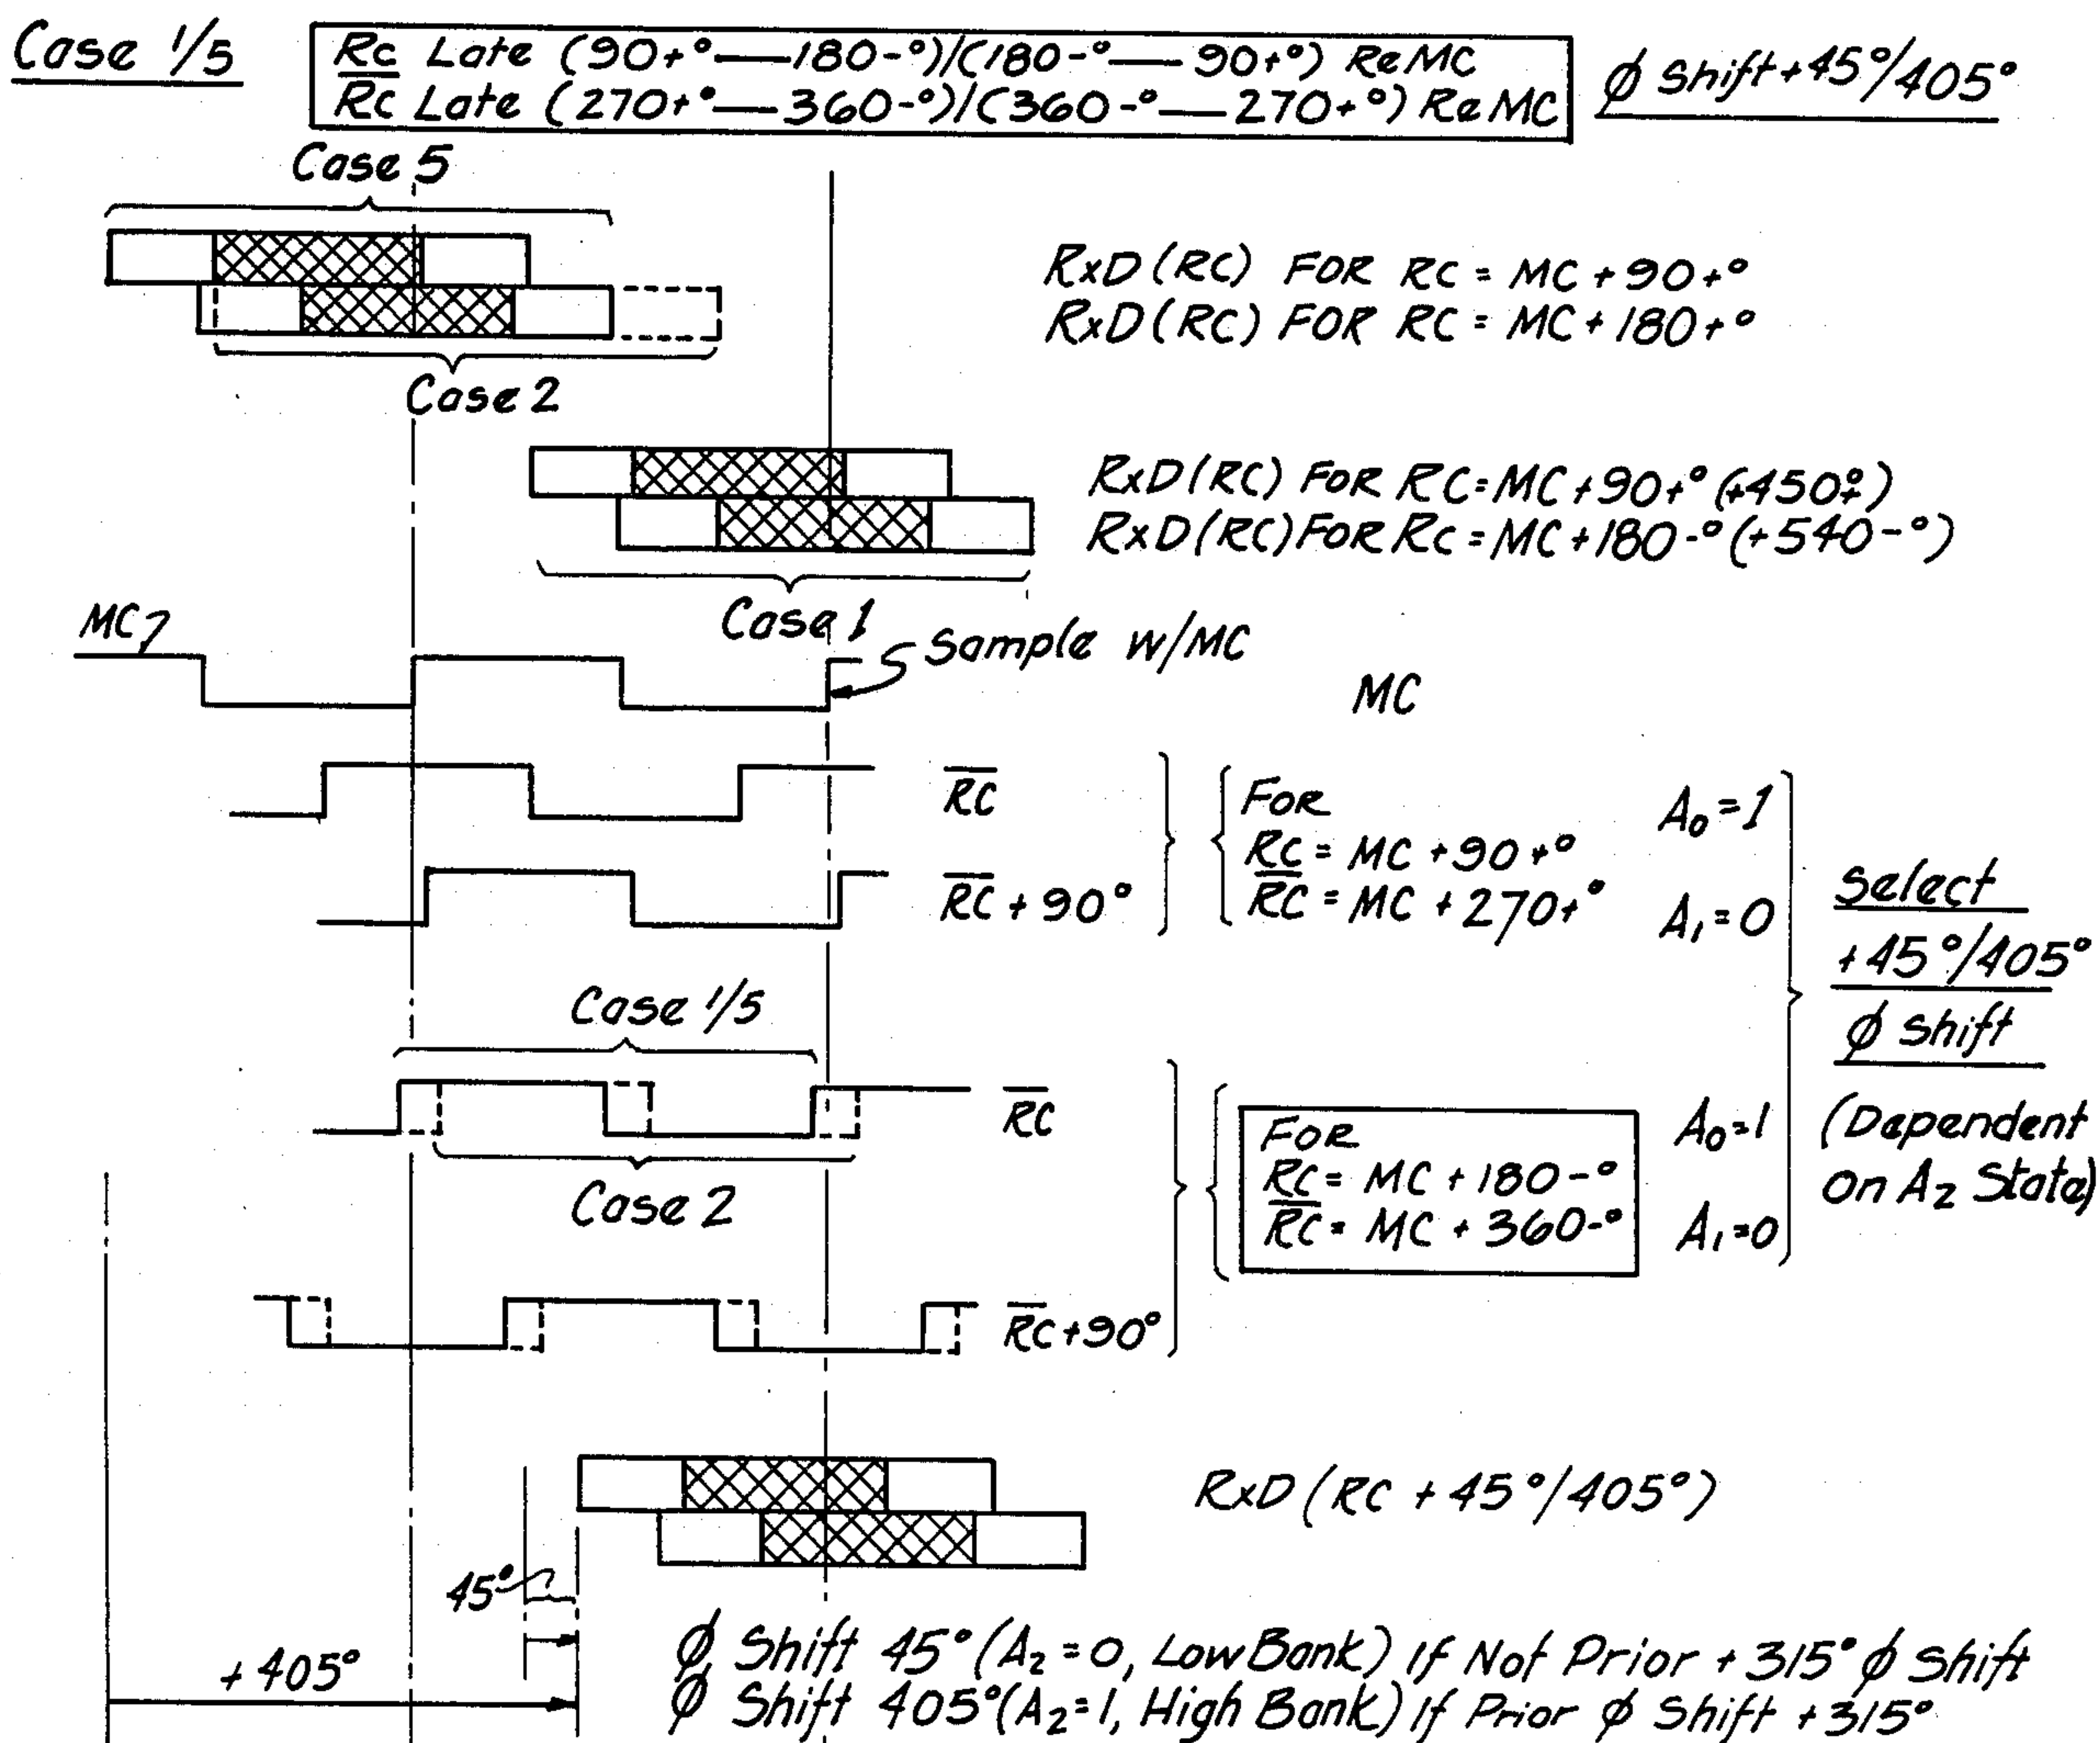 Case 1/5
Rc Late (90+°—180-°)/(180-°—90+°) Re MC
R̅c̅ Late (270+°—360-°)/(360-°—270+°) Re MC
φ Shift +45°/405°
Case 5
RxD (RC) FOR RC = MC + 90+°
RxD (RC) FOR RC = MC + 180+°
Case 2
RxD (RC) FOR RC = MC + 90+° (+450°+)
RxD (RC) FOR RC = MC + 180-° (+540-°)
Case 1
MC
Sample w/MC
MC
R̅C̅
R̅C̅ + 90°
FOR
RC = MC + 90+°
R̅C̅ = MC + 270+°
A₀ = 1
A₁ = 0
Select
+45°/405°
φ Shift
(Dependent
on A₂ State)
Case 1/5
R̅C̅
Case 2
FOR
RC = MC + 180-°
R̅C̅ = MC + 360-°
A₀=1
A₁=0
R̅C̅+90°
RxD (RC + 45°/405°)
45°
+405°
φ Shift 45° (A₂ = 0, Low Bank) If Not Prior + 315° φ Shift
φ Shift 405° (A₂=1, High Bank) If Prior φ Shift +315°